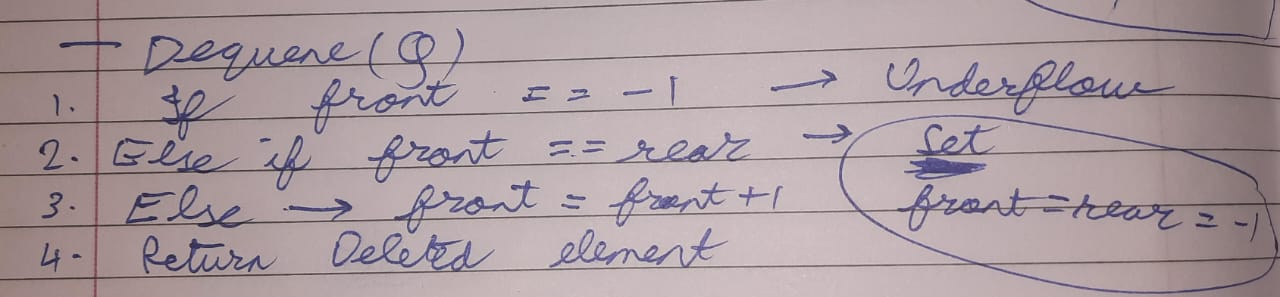 — Dequeue(Q)
1. If front == -1 → Underflow
2. Else if front == rear → Set
front = rear = -1
3. Else → front = front + 1
4. Return Deleted element